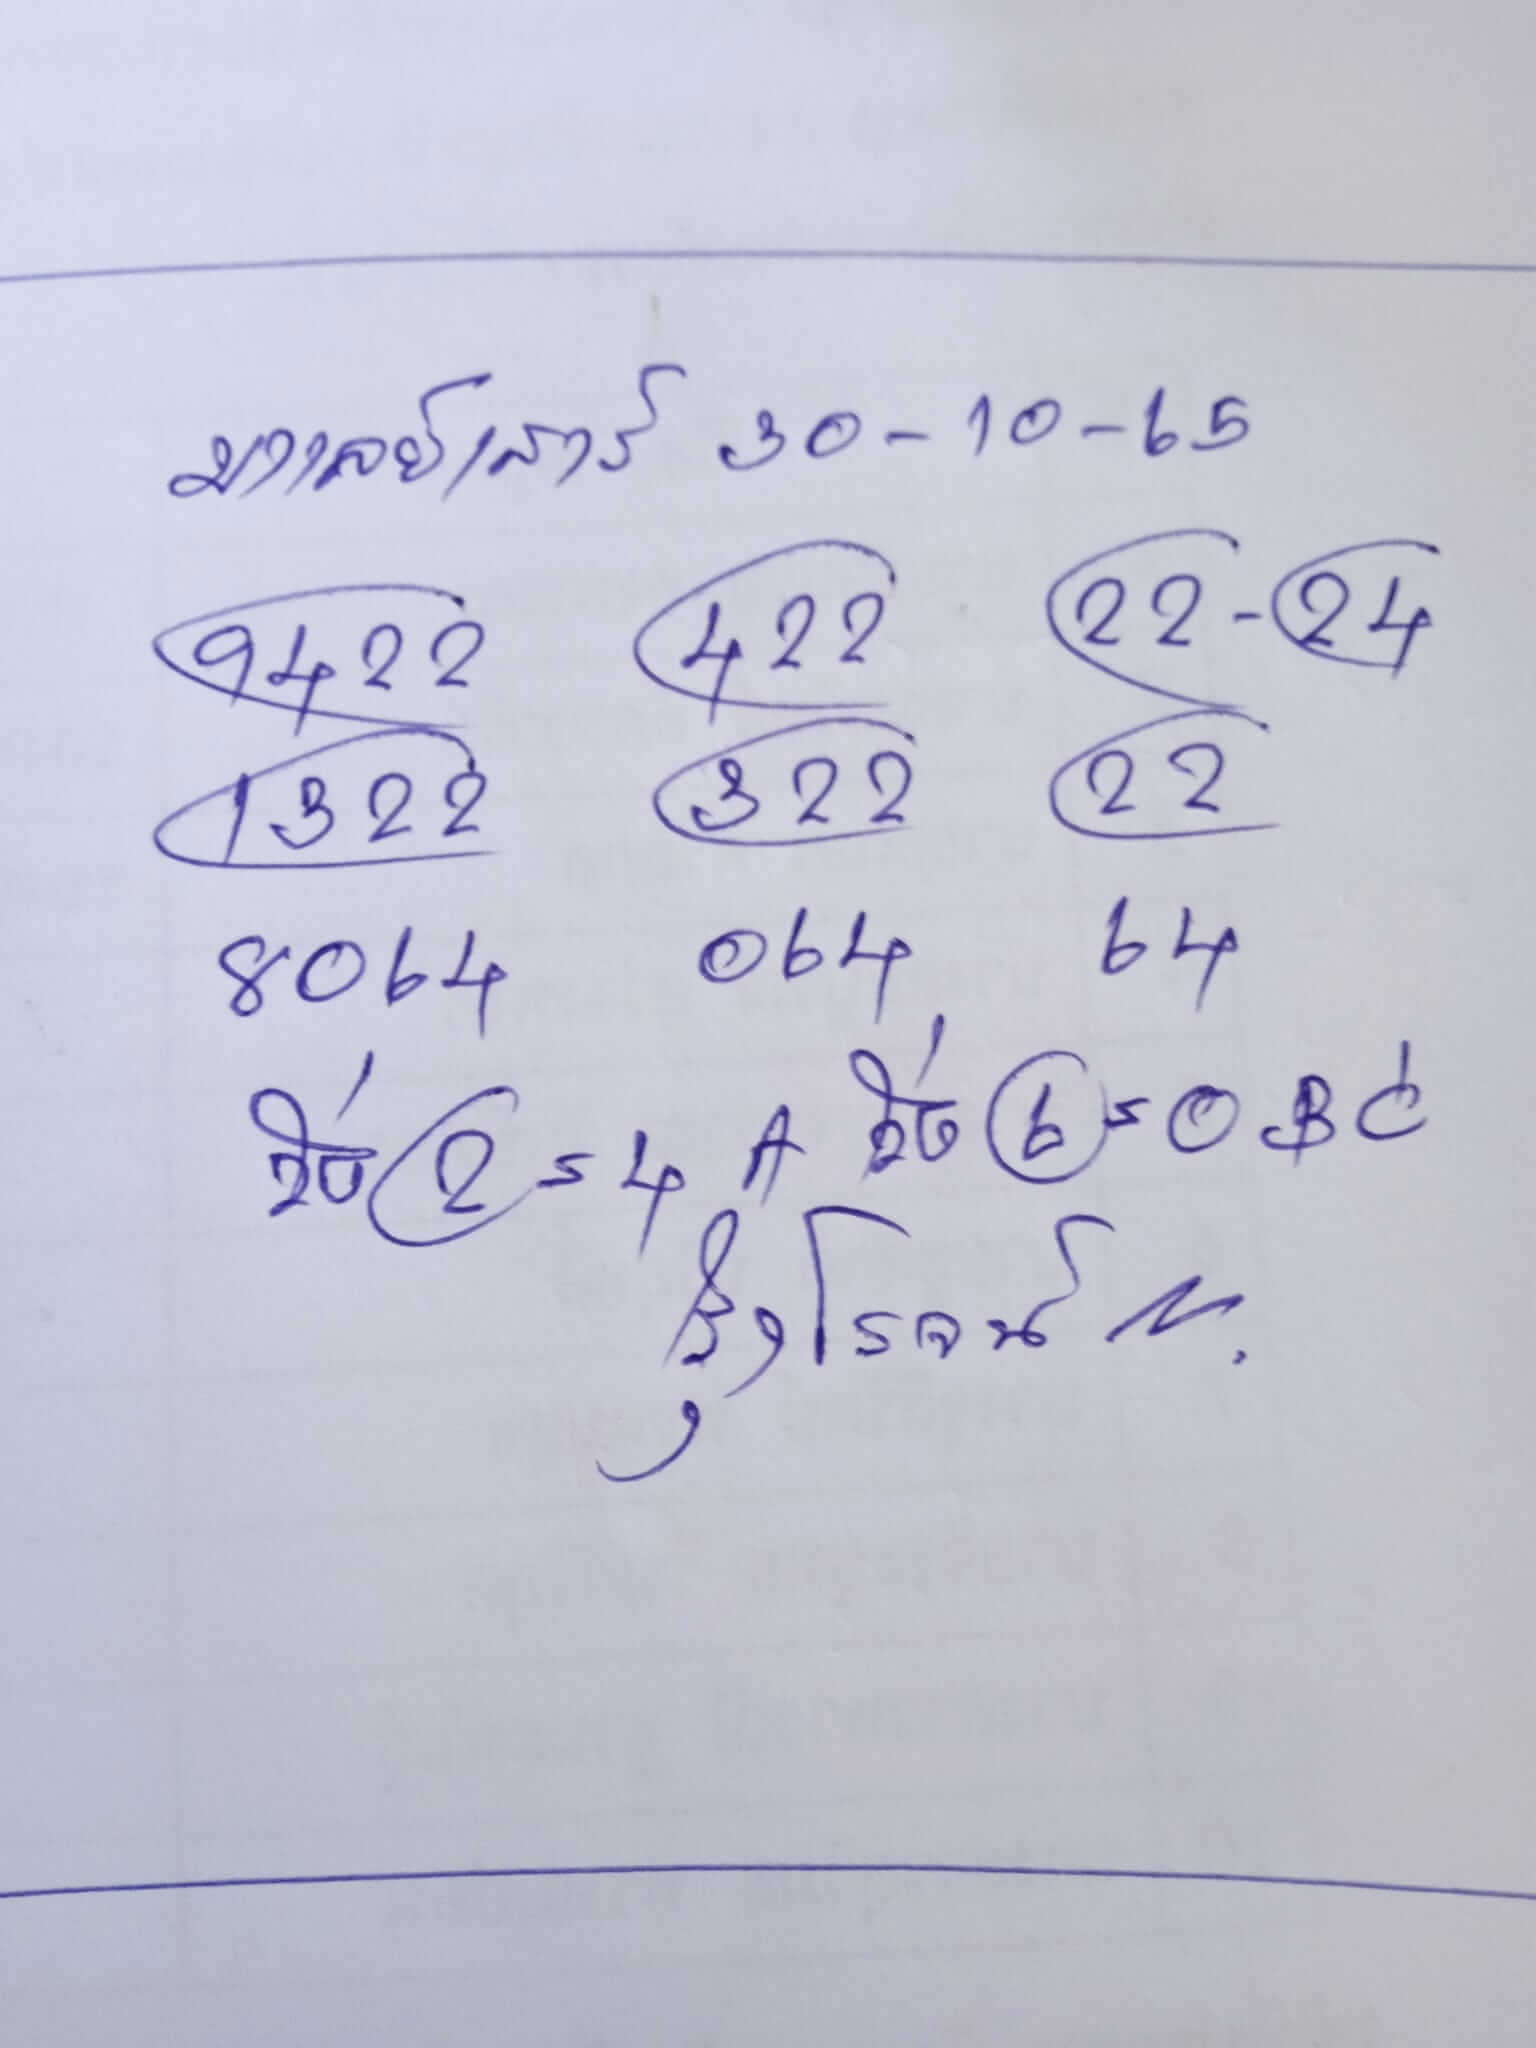 มาเลย์เสาร์ 30-10-65
9422 422 22-24
1322 322 22
8064 064 64
2 = 4 A 6 = 0 B C
โรจน์ N.